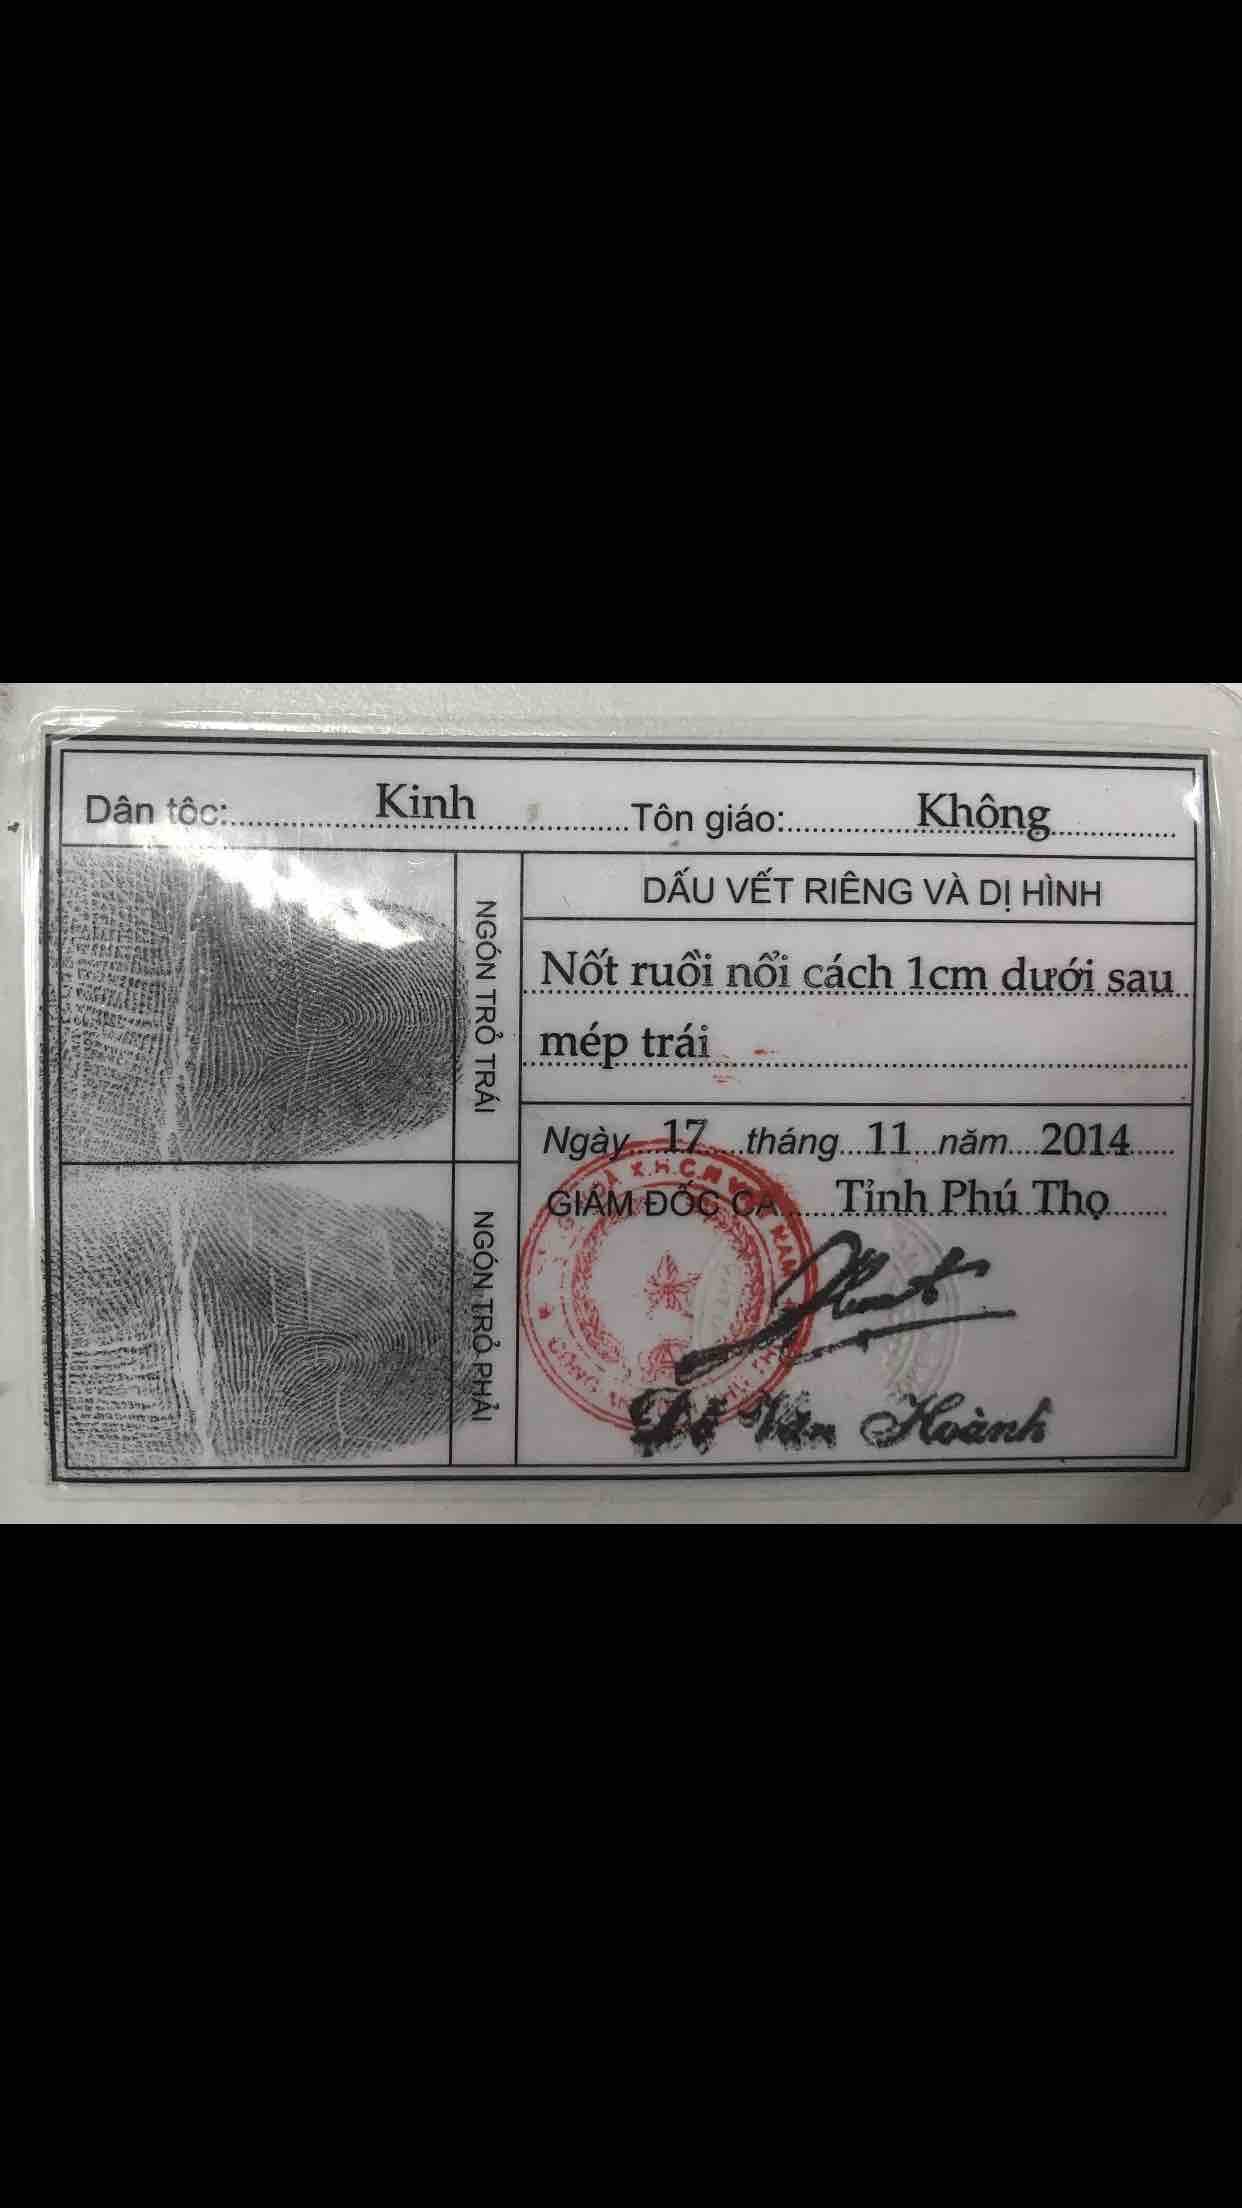 Dân tộc: Kinh Tôn giáo: Không
NGÓN TRỎ TRÁI
DẤU VẾT RIÊNG VÀ DỊ HÌNH
Nốt ruồi nổi cách 1cm dưới sau
mép trái
Ngày 17 tháng 11 năm 2014
GIÁM ĐỐC CA Tỉnh Phú Thọ
X.H.C.N VIỆT NAM
CÔNG AN
NGÓN TRỎ PHẢI
Đỗ Văn Hoành